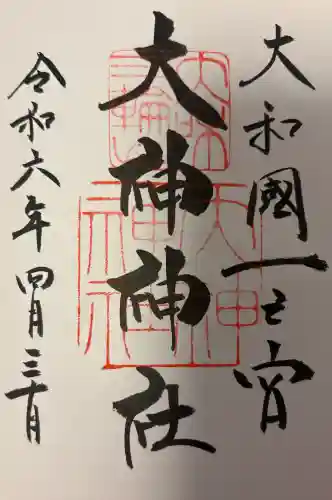 大和國一之宮
大神神社
令和六年四月三十日